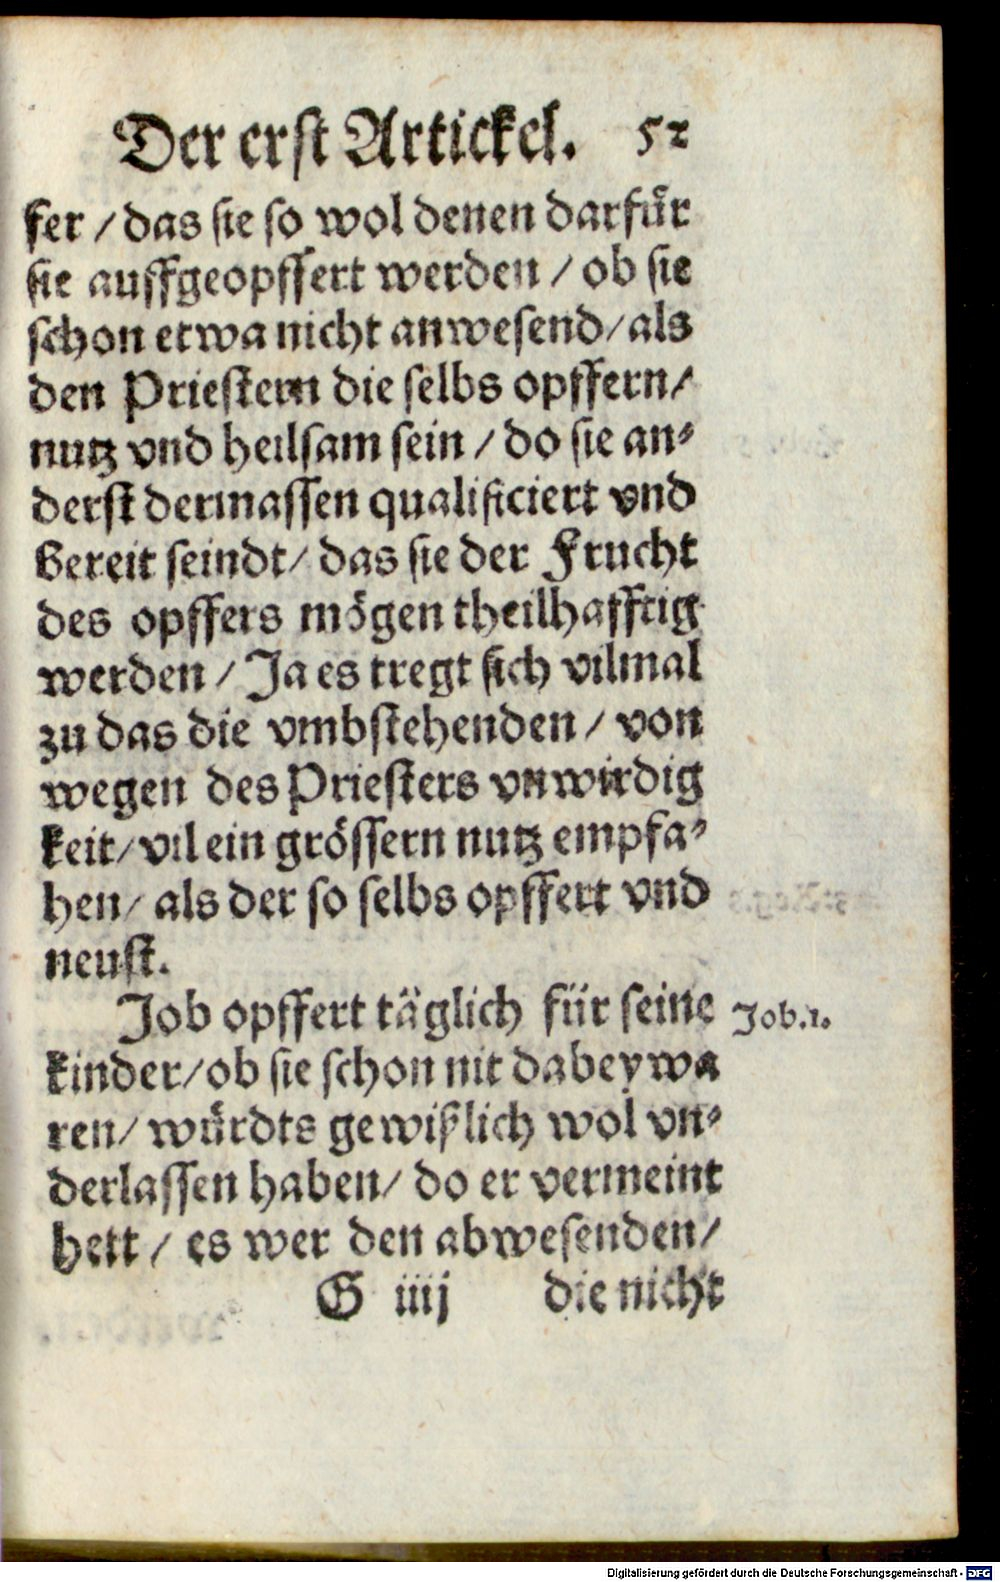 Der erst Artickel. 52
fer / das sie so wol denen darfür
sie auffgeopffert werden / ob sie
schon etwa nicht anwesend / als
den Priestern die selbs opffern /
nutz vnd heilsam sein / do sie an⸗
derst dermassen qualificiert vnd
bereit seindt / das sie der Frucht
des opffers mögen theilhafftig
werden / Ja es tregt sich vilmal
zu das die vmbstehenden / von
wegen des Priesters vnwirdig
keit / vil ein grössern nutz empfa⸗
hen / als der so selbs opffert vnd
neust.
Job opffert täglich für seine Job.1.
kinder / ob sie schon nit dabey wa
ren / würdts gewißlich wol vn⸗
derlassen haben / do er vermeint
hett / es wer den abwesenden /
G iiij die nicht
Digitalisierung gefördert durch die Deutsche Forschungsgemeinschaft - DFG